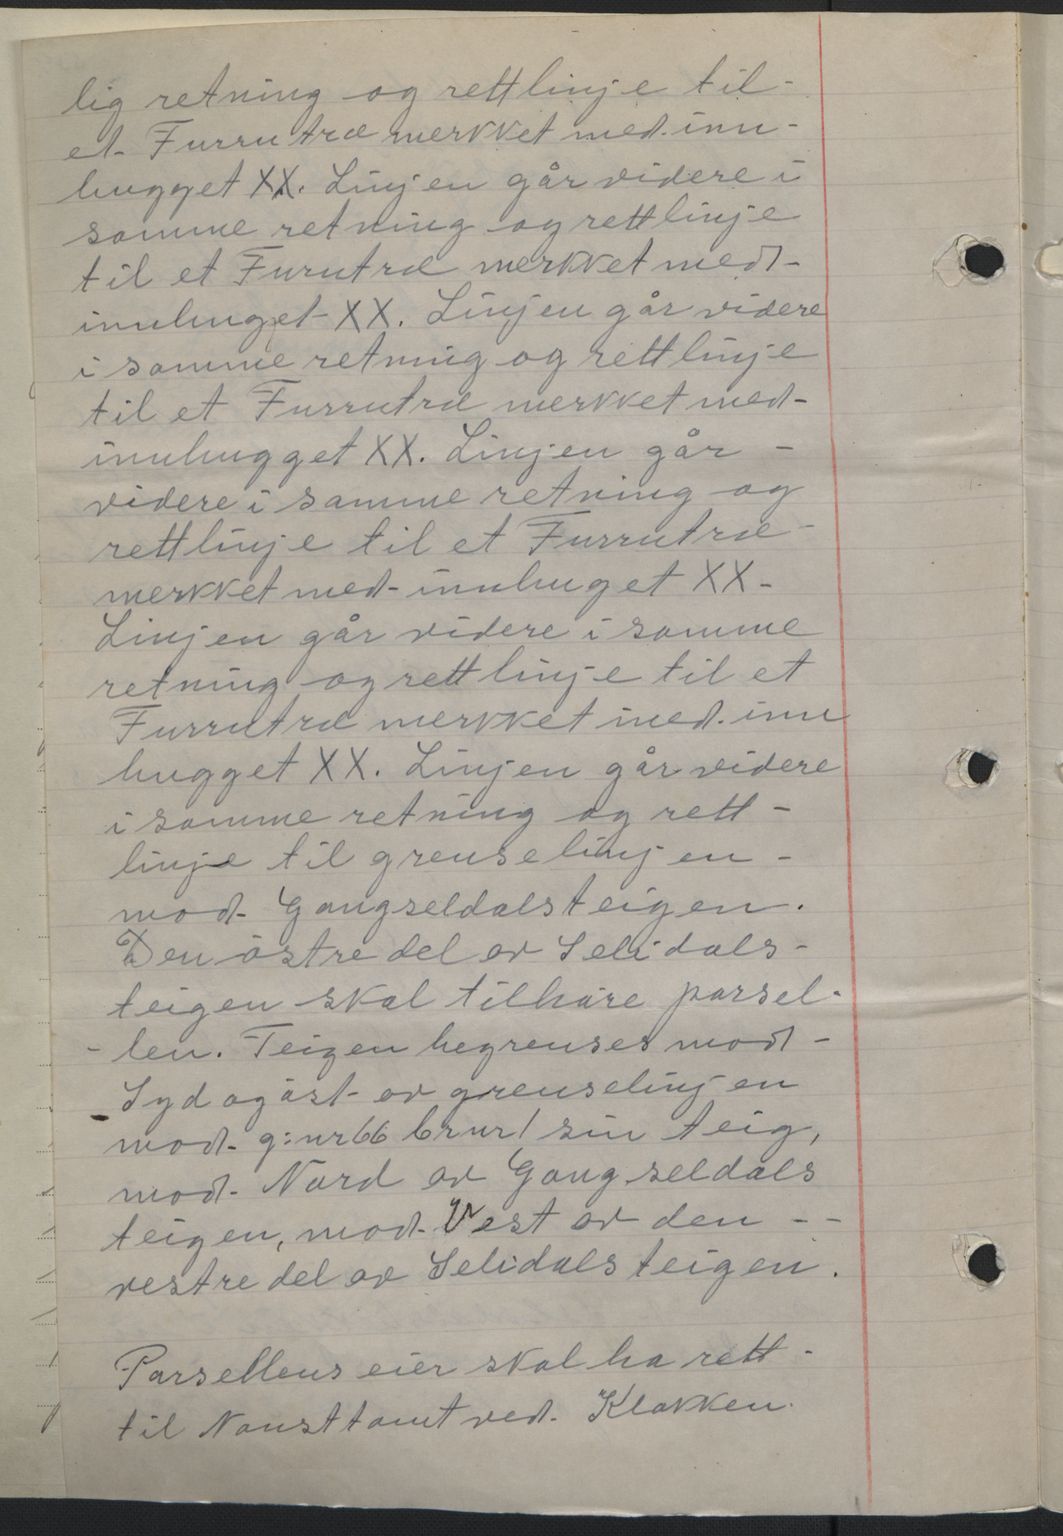 lig retning og rettlinje til-
et- Furrutræ merkket med. inn-
hugget XX. Linjen går videre i
samme retning og rettlinje
til et Furutræ merkket med-
innhuget XX. Linjen går videre
i samme retning og rettlinje
til et Furrutræ merkket med-
innhugget XX. Linjen går -
videre i samme retning og
rettlinje til et Furrutræ -
merkket med- innhuget XX-
Linjen går videre i samme
retning og rettlinje til et
Furrutræ merkket med. inn
hugget XX. Linjen går videre
i samme retning og rett-
linje til grenselinjen -
mod- Gangseldalsteigen.
Den östre del av Selidals-
teigen skal tilhöre parsel-
-len. Teigen begrenses mod -
Syd og öst- av grenselinjen
mod- g:nr 66 brnr 1 sin teig,
mod- Nord av Gangseldals
teigen, mod- Vest av den --
vestre del av Selidalsteigen.
Parsellens eier skal ha rett-
til Nausttomt ved. Klakken.